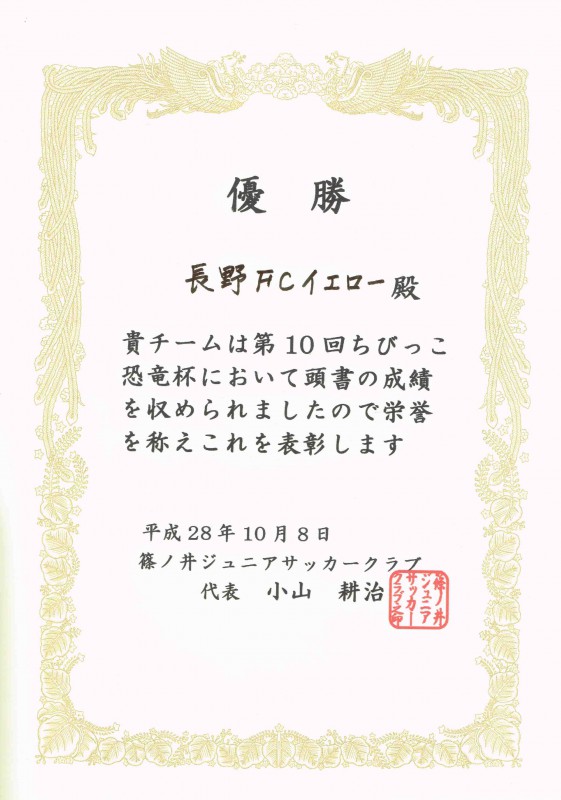 優 勝
長野FCイエロー殿
貴チームは第10回ちびっこ
恐竜杯において頭書の成績
を収められましたので栄誉
を称えこれを表彰します
平成28年10月8日
篠ノ井ジュニアサッカークラブ
代表 小山 耕治
篠ノ井
ジュニア
サッカー
クラブ之印